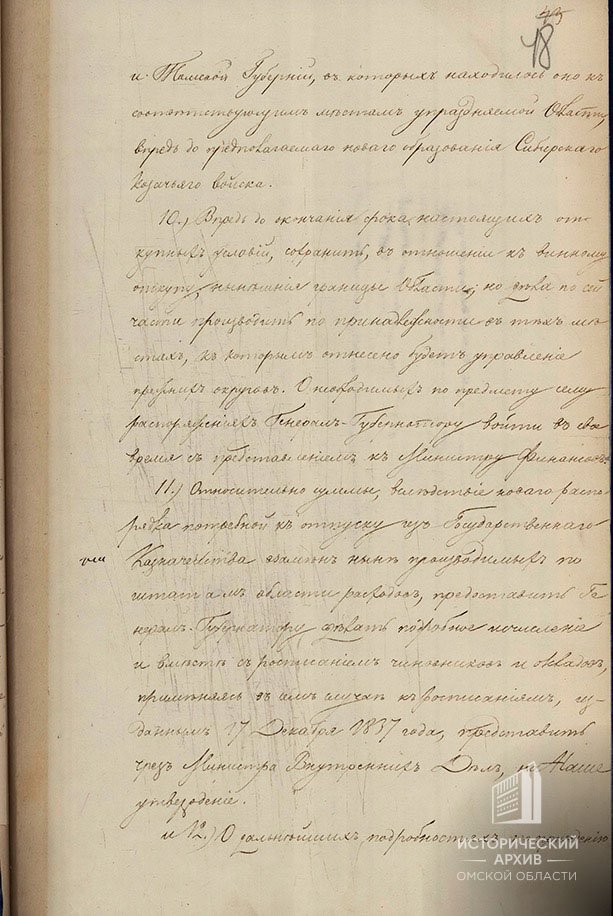 48
и Томской Губерніи, въ которыхъ находилось оно къ
соответствующимъ местамъ упраздняемой Области,
впредь до предполагаемаго новаго образованія Сибирскаго
козачьяго войска.
10.) Впредь до окончанія срока настоящихъ от-
купныхъ условій, сохранить, въ отношеніи къ винному
откупу, нынешнія границы Области; но дела по сей
части производить по принадлежности въ техъ ме-
стахъ, къ которымъ отнесено будетъ управленіе
прежнихъ округовъ. О необходимыхъ по предмету сему
распоряженіяхъ Генералъ-Губернатору войти въ свое
время съ представленіемъ къ Министру Финансовъ.
11.) Относительно суммы, вследствіе новаго распо-
рядка потребной къ отпуску изъ Государственнаго
Казначейства взаменъ ныне производимыхъ по
штатамъ области расходовъ, предоставить Ге-
нералъ-Губернатору сделать подробное исчисленіе
и вместе съ росписаніемъ чиновниковъ и окладовъ,
применяясь въ семъ случае къ росписаніямъ, из-
даннымъ 17 Декабря 1837 года, представить
чрезъ Министра Внутреннихъ Делъ, на Наше
утвержденіе.
и 12.) О дальнейшихъ подробностяхъ
ИСТОРИЧЕСКИЙ
АРХИВ
ОМСКОЙ ОБЛАСТИ